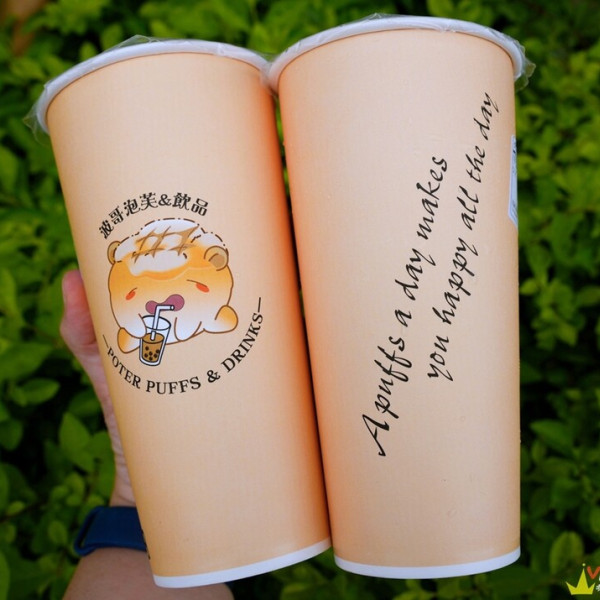 波哥泡芙&飲品
—POTER PUFFS & DRINKS—
A puffs a day makes
you happy all the day